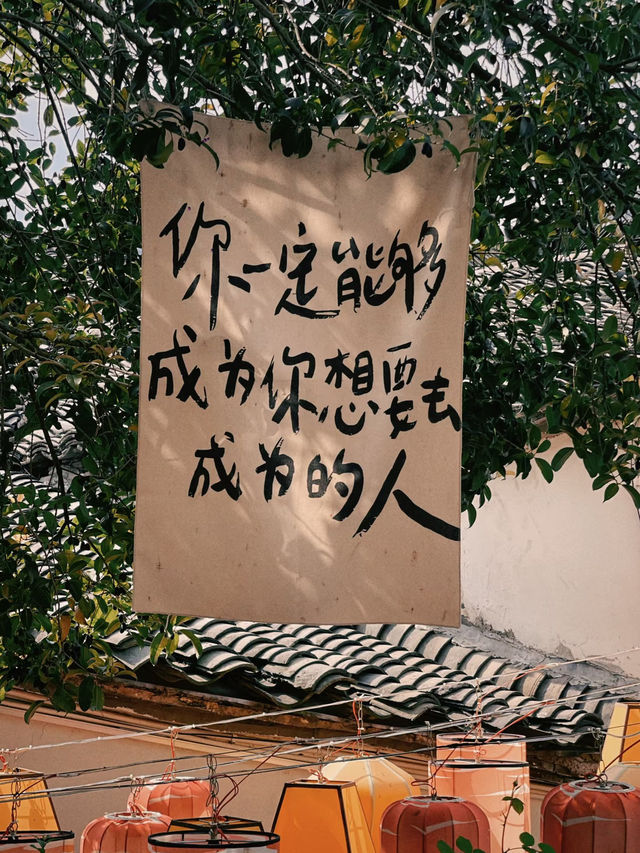 你一定能够
成为你想要去
成为的人